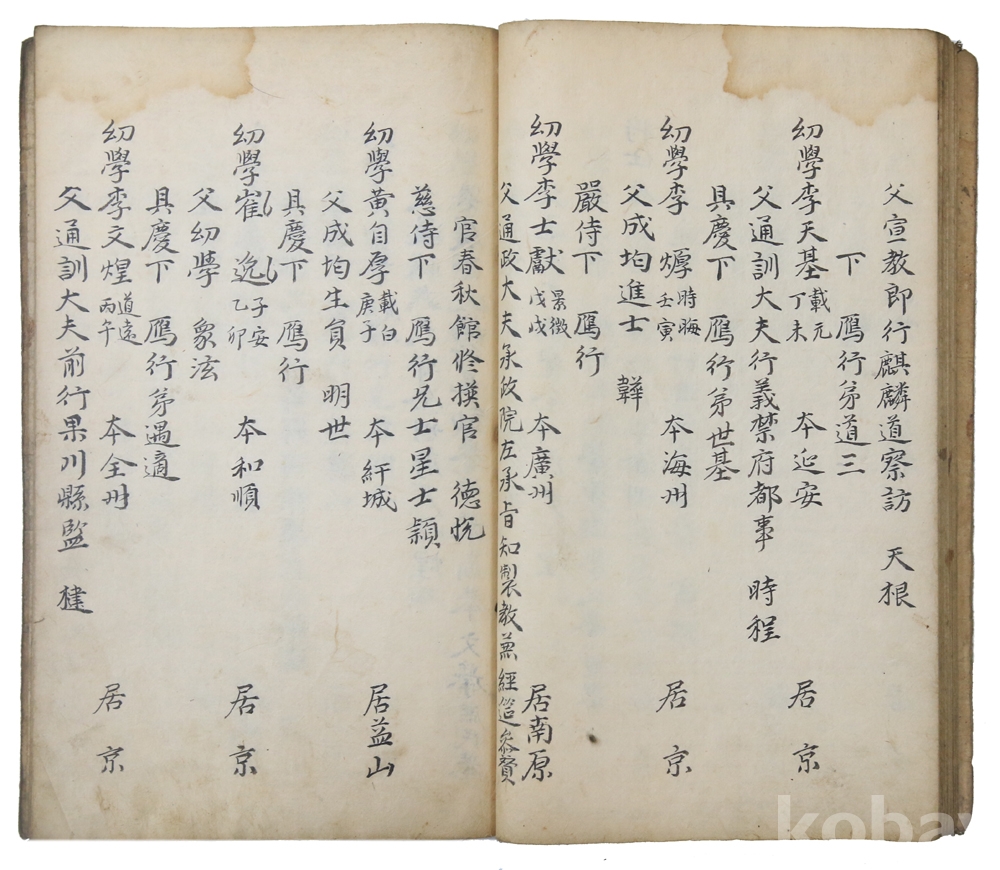 父宣教郎行麒麟道察訪 天根
下 鴈行弟道三
幼學李天基 載元 丁未 本延安 居京
父通訓大夫行義禁府都事 時程
具慶下 鴈行弟世基
幼學李爗 時晦 壬寅 本海州 居京
父成均進士 韡
嚴侍下 鴈行
幼學李士獻 景徵 戊戌 本廣州 居南原
父通政大夫承政院左承旨知製教兼經筵參贊
官春秋館修撰官 德悅
慈侍下 鴈行兄士星士頴
幼學黃自厚 載白 庚子 本紆城 居益山
父成均生員 明世
具慶下 鴈行
幼學崔 逸 子安 乙卯 本和順 居京
父幼學 衆泫
具慶下 鴈行弟遇適
幼學李文煌 道遠 丙午 本全州 居京
父通訓大夫前行果川縣監 揵
kobay